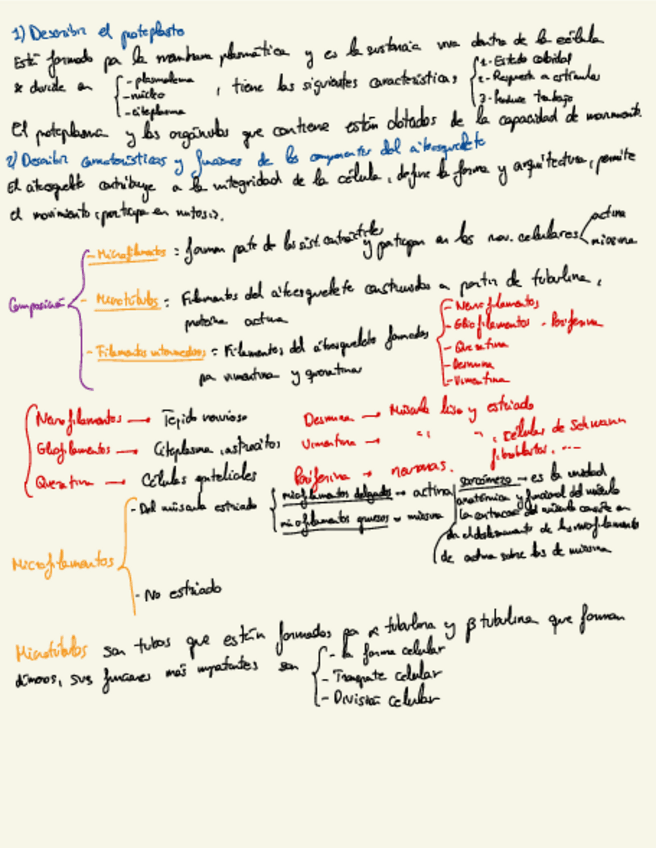 1) Describir el protoplasto
Está formado por la membrana plasmática y es la sustancia viva dentro de la célula
se divide en
- plasmalema
- núcleo
- citoplasma
, tiene las siguientes características
1- Estado coloidal
2- Respuesta a estímulos
3- Produce trabajo
El protoplasma y los orgánulos que contiene están dotados de la capacidad de movimiento.
2) Describir características y funciones de los componentes del citoesqueleto
El citoesqueleto contribuye a la integridad de la célula, define la forma y arquitectura, permite
el movimiento (participa en mitosis).
Composición
- Microfilamentos : forman parte de los sist. contráctiles y participan en los mov. celulares
actina
miosina
- Microtúbulos : Filamentos del citoesqueleto construidos a partir de tubulina,
proteína actina
- Filamentos intermedios : Filamentos del citoesqueleto formados
por vimentina y queratina
- Neurofilamentos
- Gliofilamentos - Periferina
- Queratina
- Desmina
- Vimentina
Neurofilamentos → Tejido nervioso
Gliofilamentos → Citoplasma, astrocitos
Queratina → Células epiteliales
Desmina → Músculo liso y estriado
Vimentina → " " , células de Schwann
fibroblastos, ...
Periferina → neuronas.
Microfilamentos
- Del músculo estriado
microfilamentos delgados → actina
microfilamentos gruesos → miosina
sarcómero → es la unidad
anatómica y funcional del músculo
La contracción del músculo consiste en
en el deslizamiento de los microfilamentos
de actina sobre los de miosina
- No estriado
Microtúbulos son tubos que están formados por α tubulina y β tubulina que forman
dímeros, sus funciones más importantes son
- la forma celular
- Transporte celular
- División celular